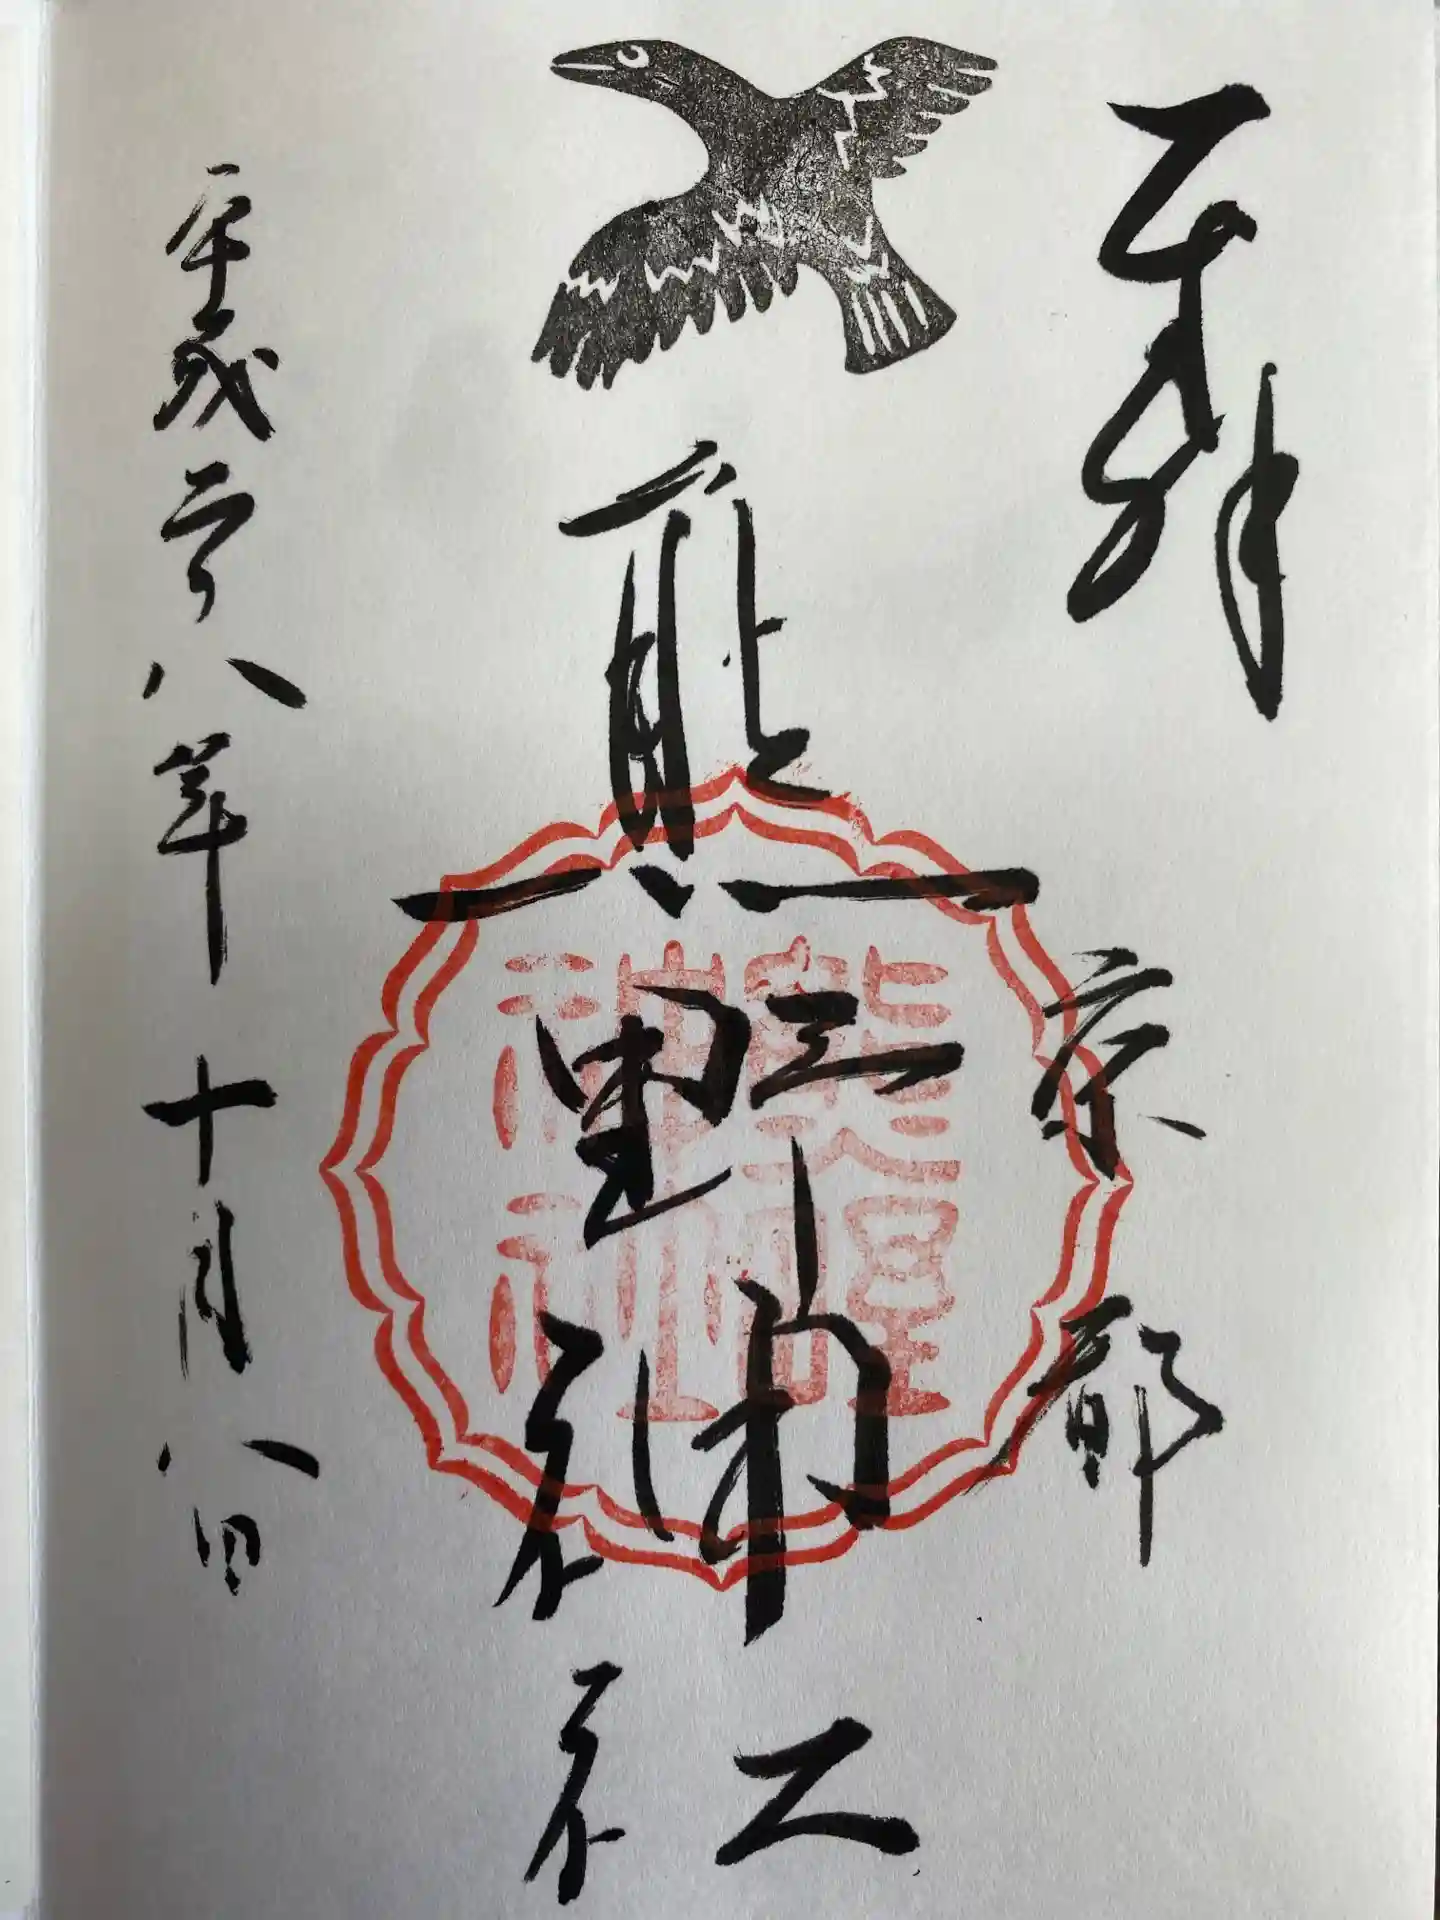 奉拝
京都
熊野神社
熊野
神社
平成二十八年十月八日